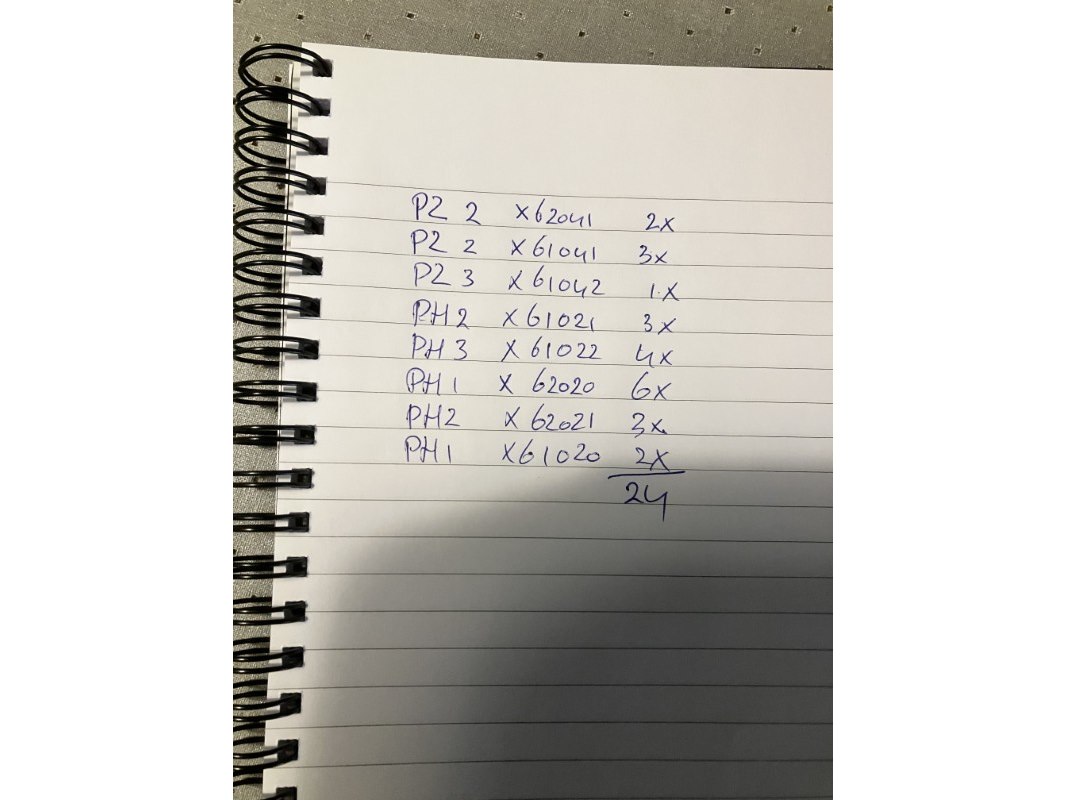 PZ 2 X62041 2x
PZ 2 X61041 3x
PZ 3 X61042 1x
PH2 X61021 3x
PH3 X61022 4x
PH1 X62020 6x
PH2 X62021 3x
PH1 X61020 2x
24